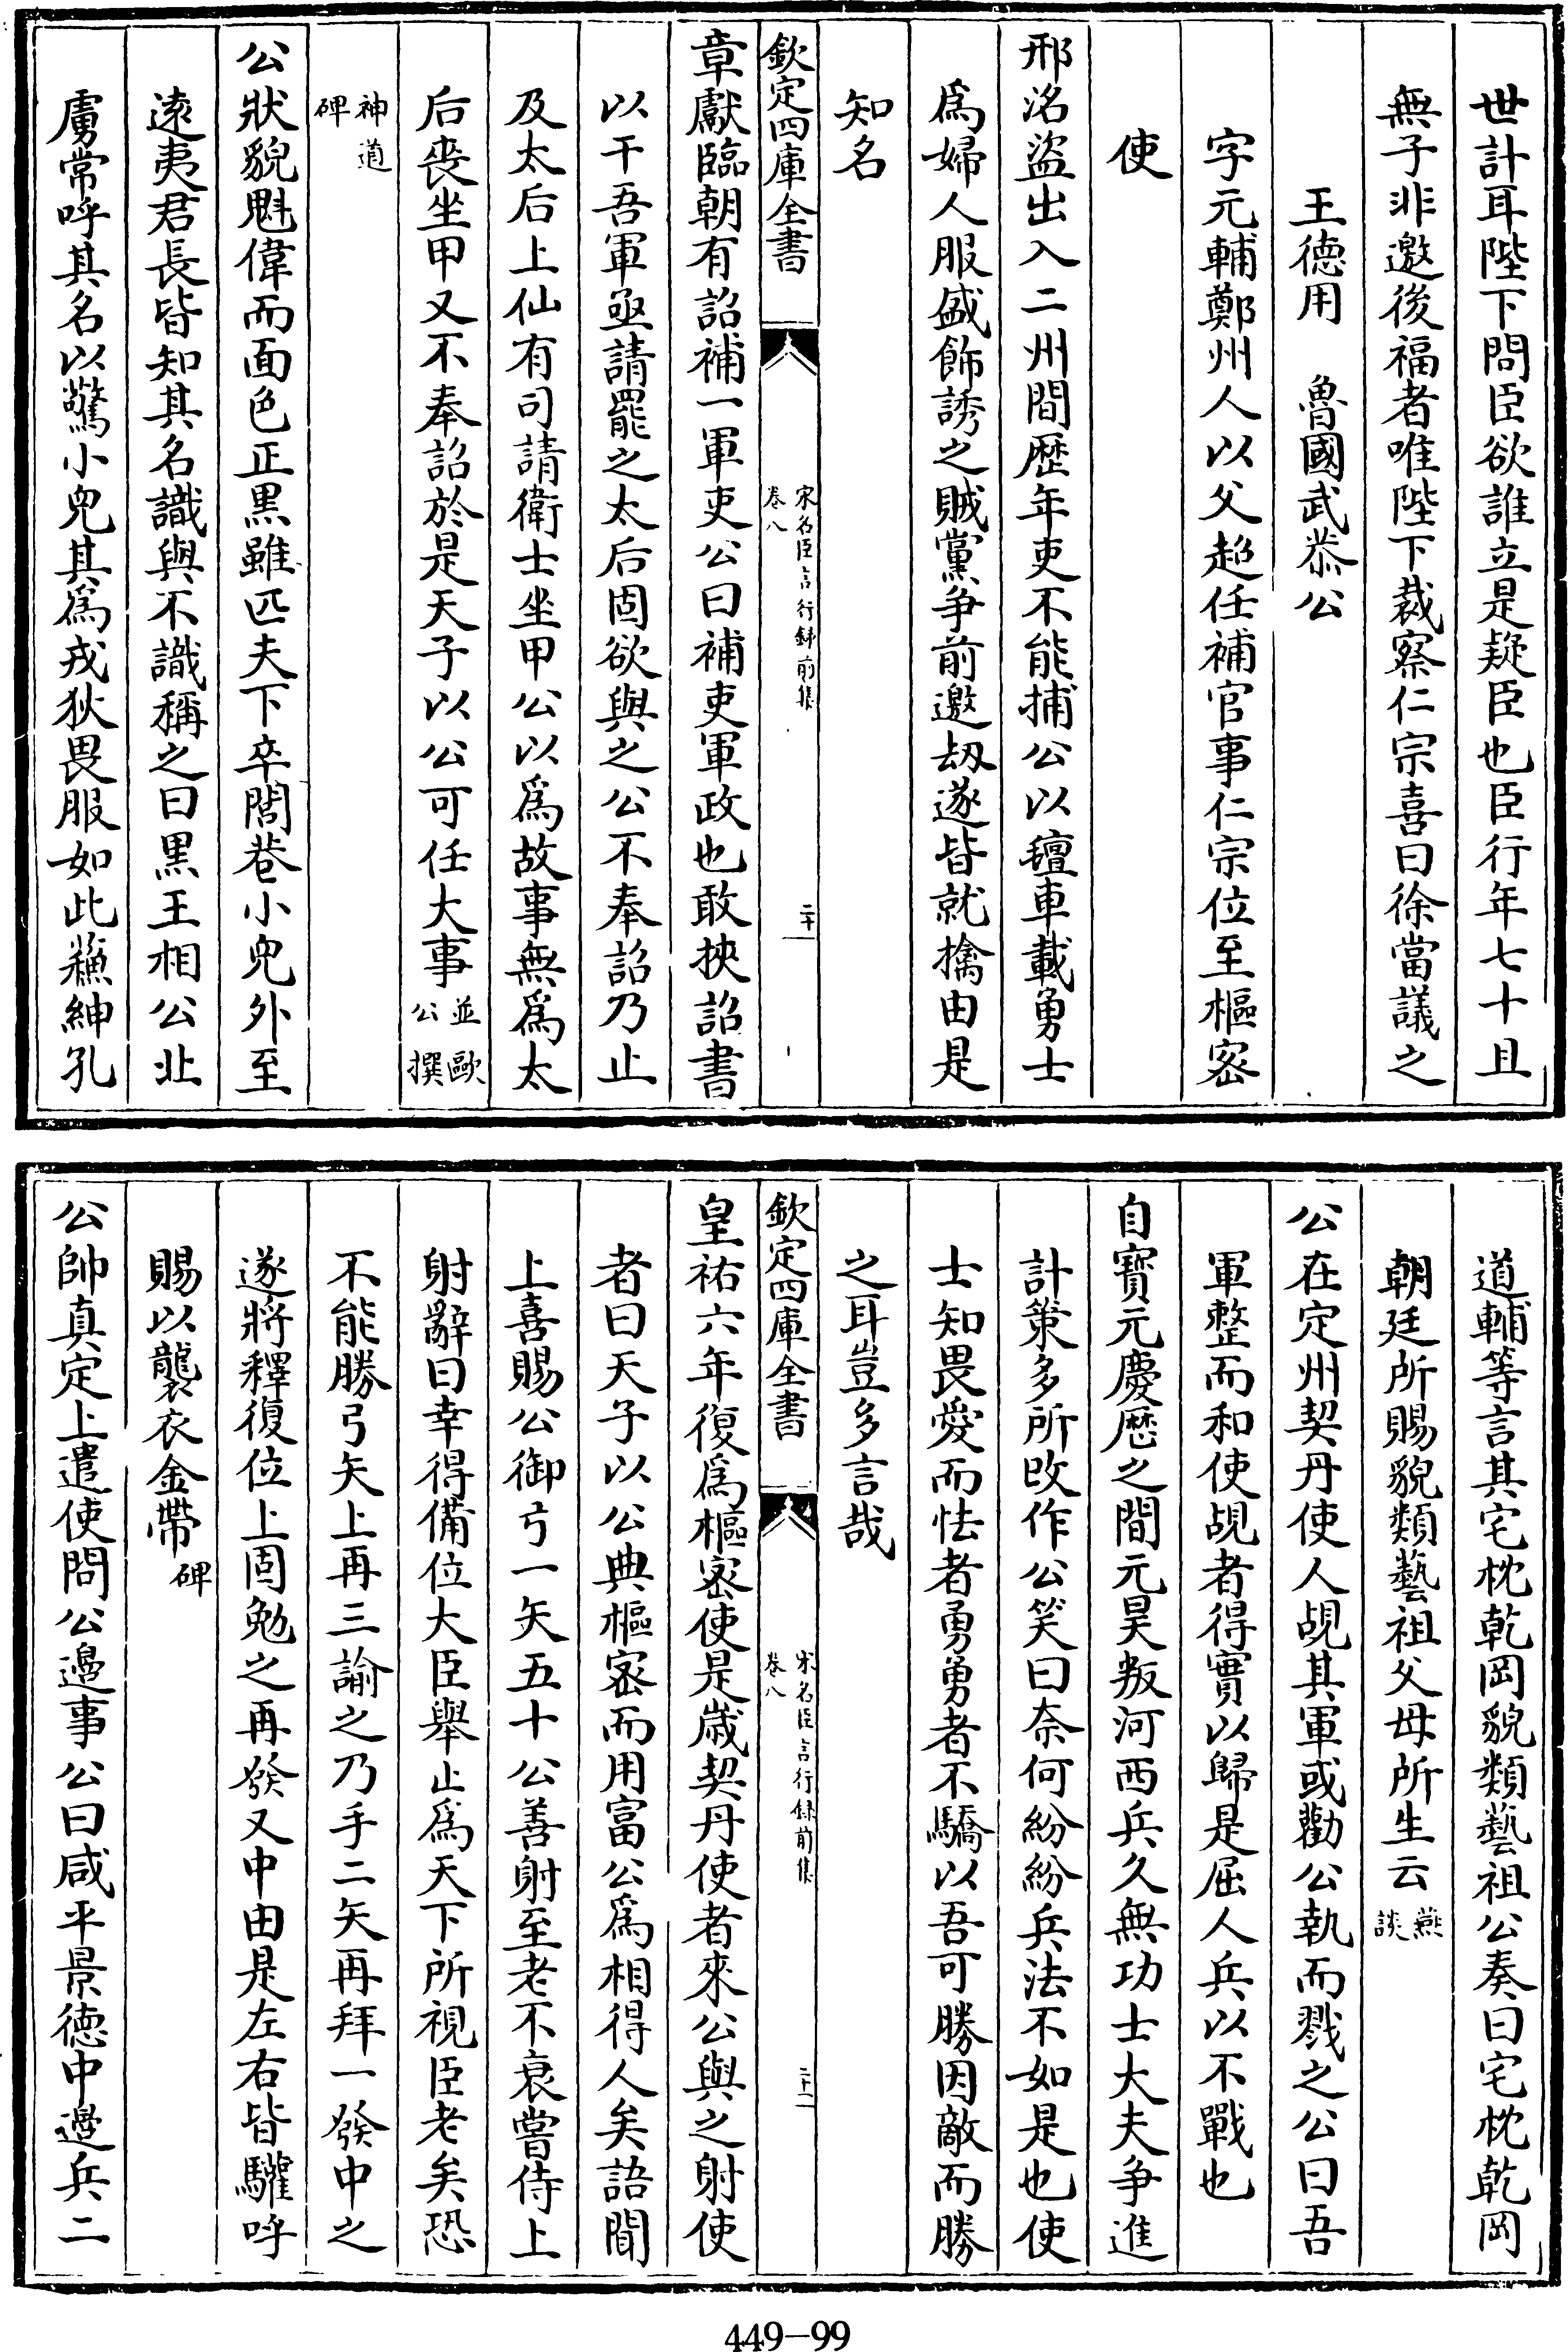 世計耳陛下問臣欲誰立是疑臣也臣行年七十且
無子非邀後福者唯陛下裁察仁宗喜曰徐當議之
王德用　魯國武恭公
字元輔鄭州人以父超任補官事仁宗位至樞密
使
邢洺盜出入二州間歴年吏不能捕公以氊車載勇士
爲婦人服盛飾誘之賊黨争前邀刼遂皆就擒由是
知名
欽定四庫全書
宋名臣言行錄前集
卷八
二十
章獻臨朝有詔補一軍吏公曰補吏軍政也敢挾詔書
以干吾軍亟請罷之太后固欲與之公不奉詔乃止
及太后上仙有司請衛士坐甲公以爲故事無爲太
后喪坐甲又不奉詔於是天子以公可任大事並歐公撰
神道碑
公狀貌魁偉而面色正黒雖匹夫下卒閭巷小兒外至
逺夷君長皆知其名識與不識稱之曰黒王相公北
虜常呼其名以驚小兒其爲戎狄畏服如此蘓紳孔
道輔等言其宅枕乾岡貌類藝祖公奏曰宅枕乾岡
朝廷所賜貌類藝祖父母所生云燕談
公在定州契丹使人覘其軍或勸公執而戮之公曰吾
軍整而和使覘者得實以歸是屈人兵以不戰也
自寳元慶歴之間元昊叛河西兵久無功士大夫争進
計策多所改作公笑曰奈何紛紛兵法不如是也使
士知畏愛而怯者勇勇者不驕以吾可勝因敵而勝
之耳豈多言哉
欽定四庫全書
宋名臣言行録前集
卷八
二十一
皇祐六年復爲樞密使是歳契丹使者來公與之射使
者曰天子以公典樞密而用富公爲相得人矣語聞
上喜賜公御弓一矢五十公善射至老不衰嘗侍上
射辭曰幸得備位大臣舉止爲天下所視臣老矣恐
不能勝弓矢上再三諭之乃手二矢再拜一發中之
遂將釋復位上固勉之再發又中由是左右皆驩呼
賜以襲衣金帶碑
公帥真定上遣使問公邊事公曰咸平景德中邊兵二
449-99